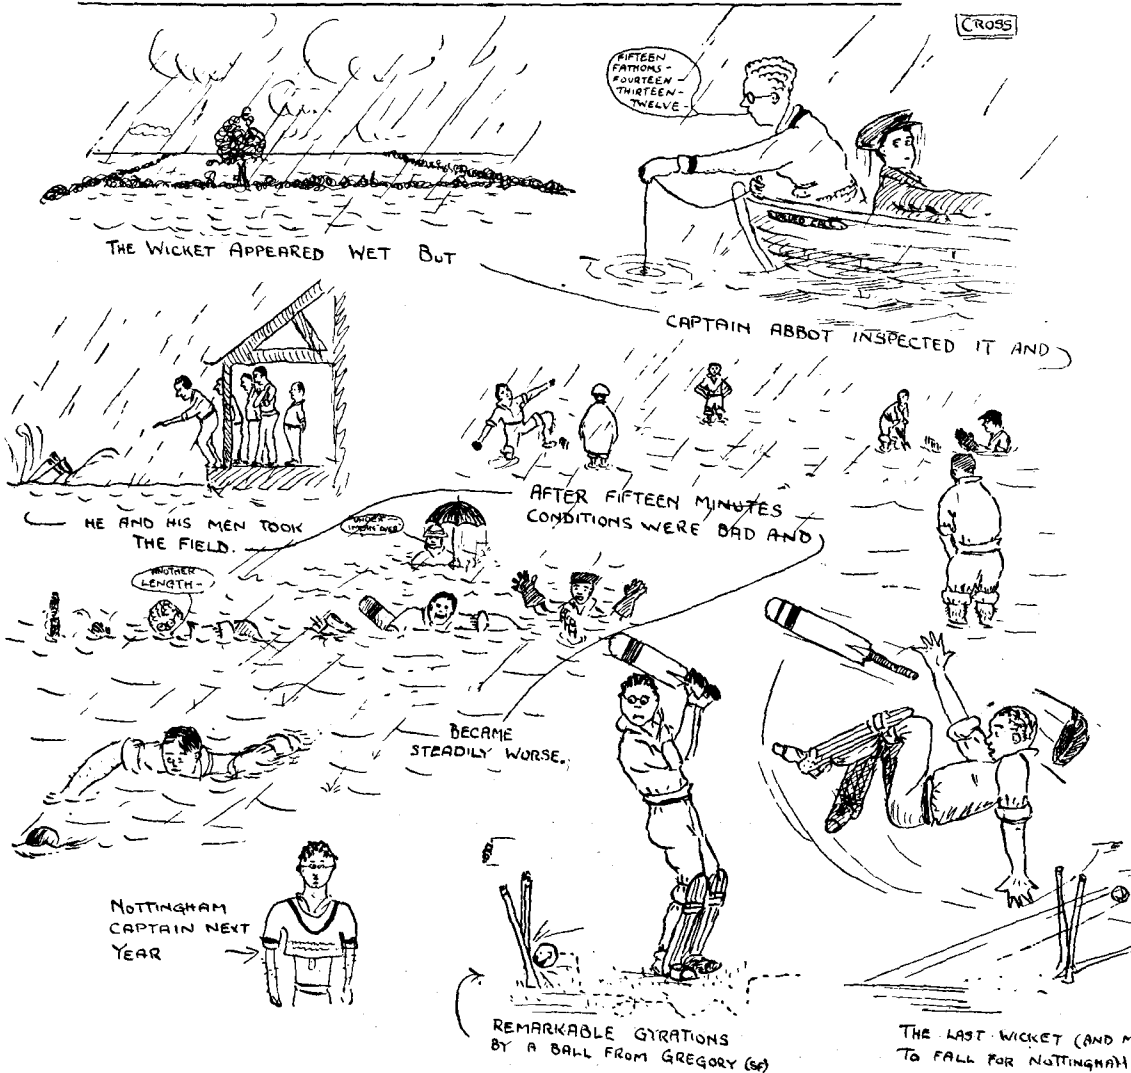 CROSS
FIFTEEN
FATHOMS -
FOURTEEN -
THIRTEEN -
TWELVE -
THE WICKET APPEARED WET BUT
CAPTAIN ABBOT INSPECTED IT AND
HE AND HIS MEN TOOK
THE FIELD.
AFTER FIFTEEN MINUTES
CONDITIONS WERE BAD AND
ANOTHER
LENGTH -
BECAME
STEADILY WORSE.
NOTTINGHAM
CAPTAIN NEXT
YEAR
REMARKABLE GYRATIONS
BY A BALL FROM GREGORY (SF)
THE LAST WICKET (AND M
TO FALL FOR NOTTINGHAM